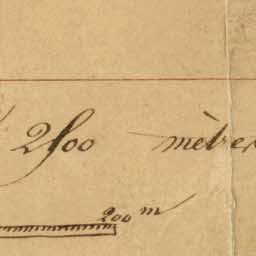 2500 mètres
200 m